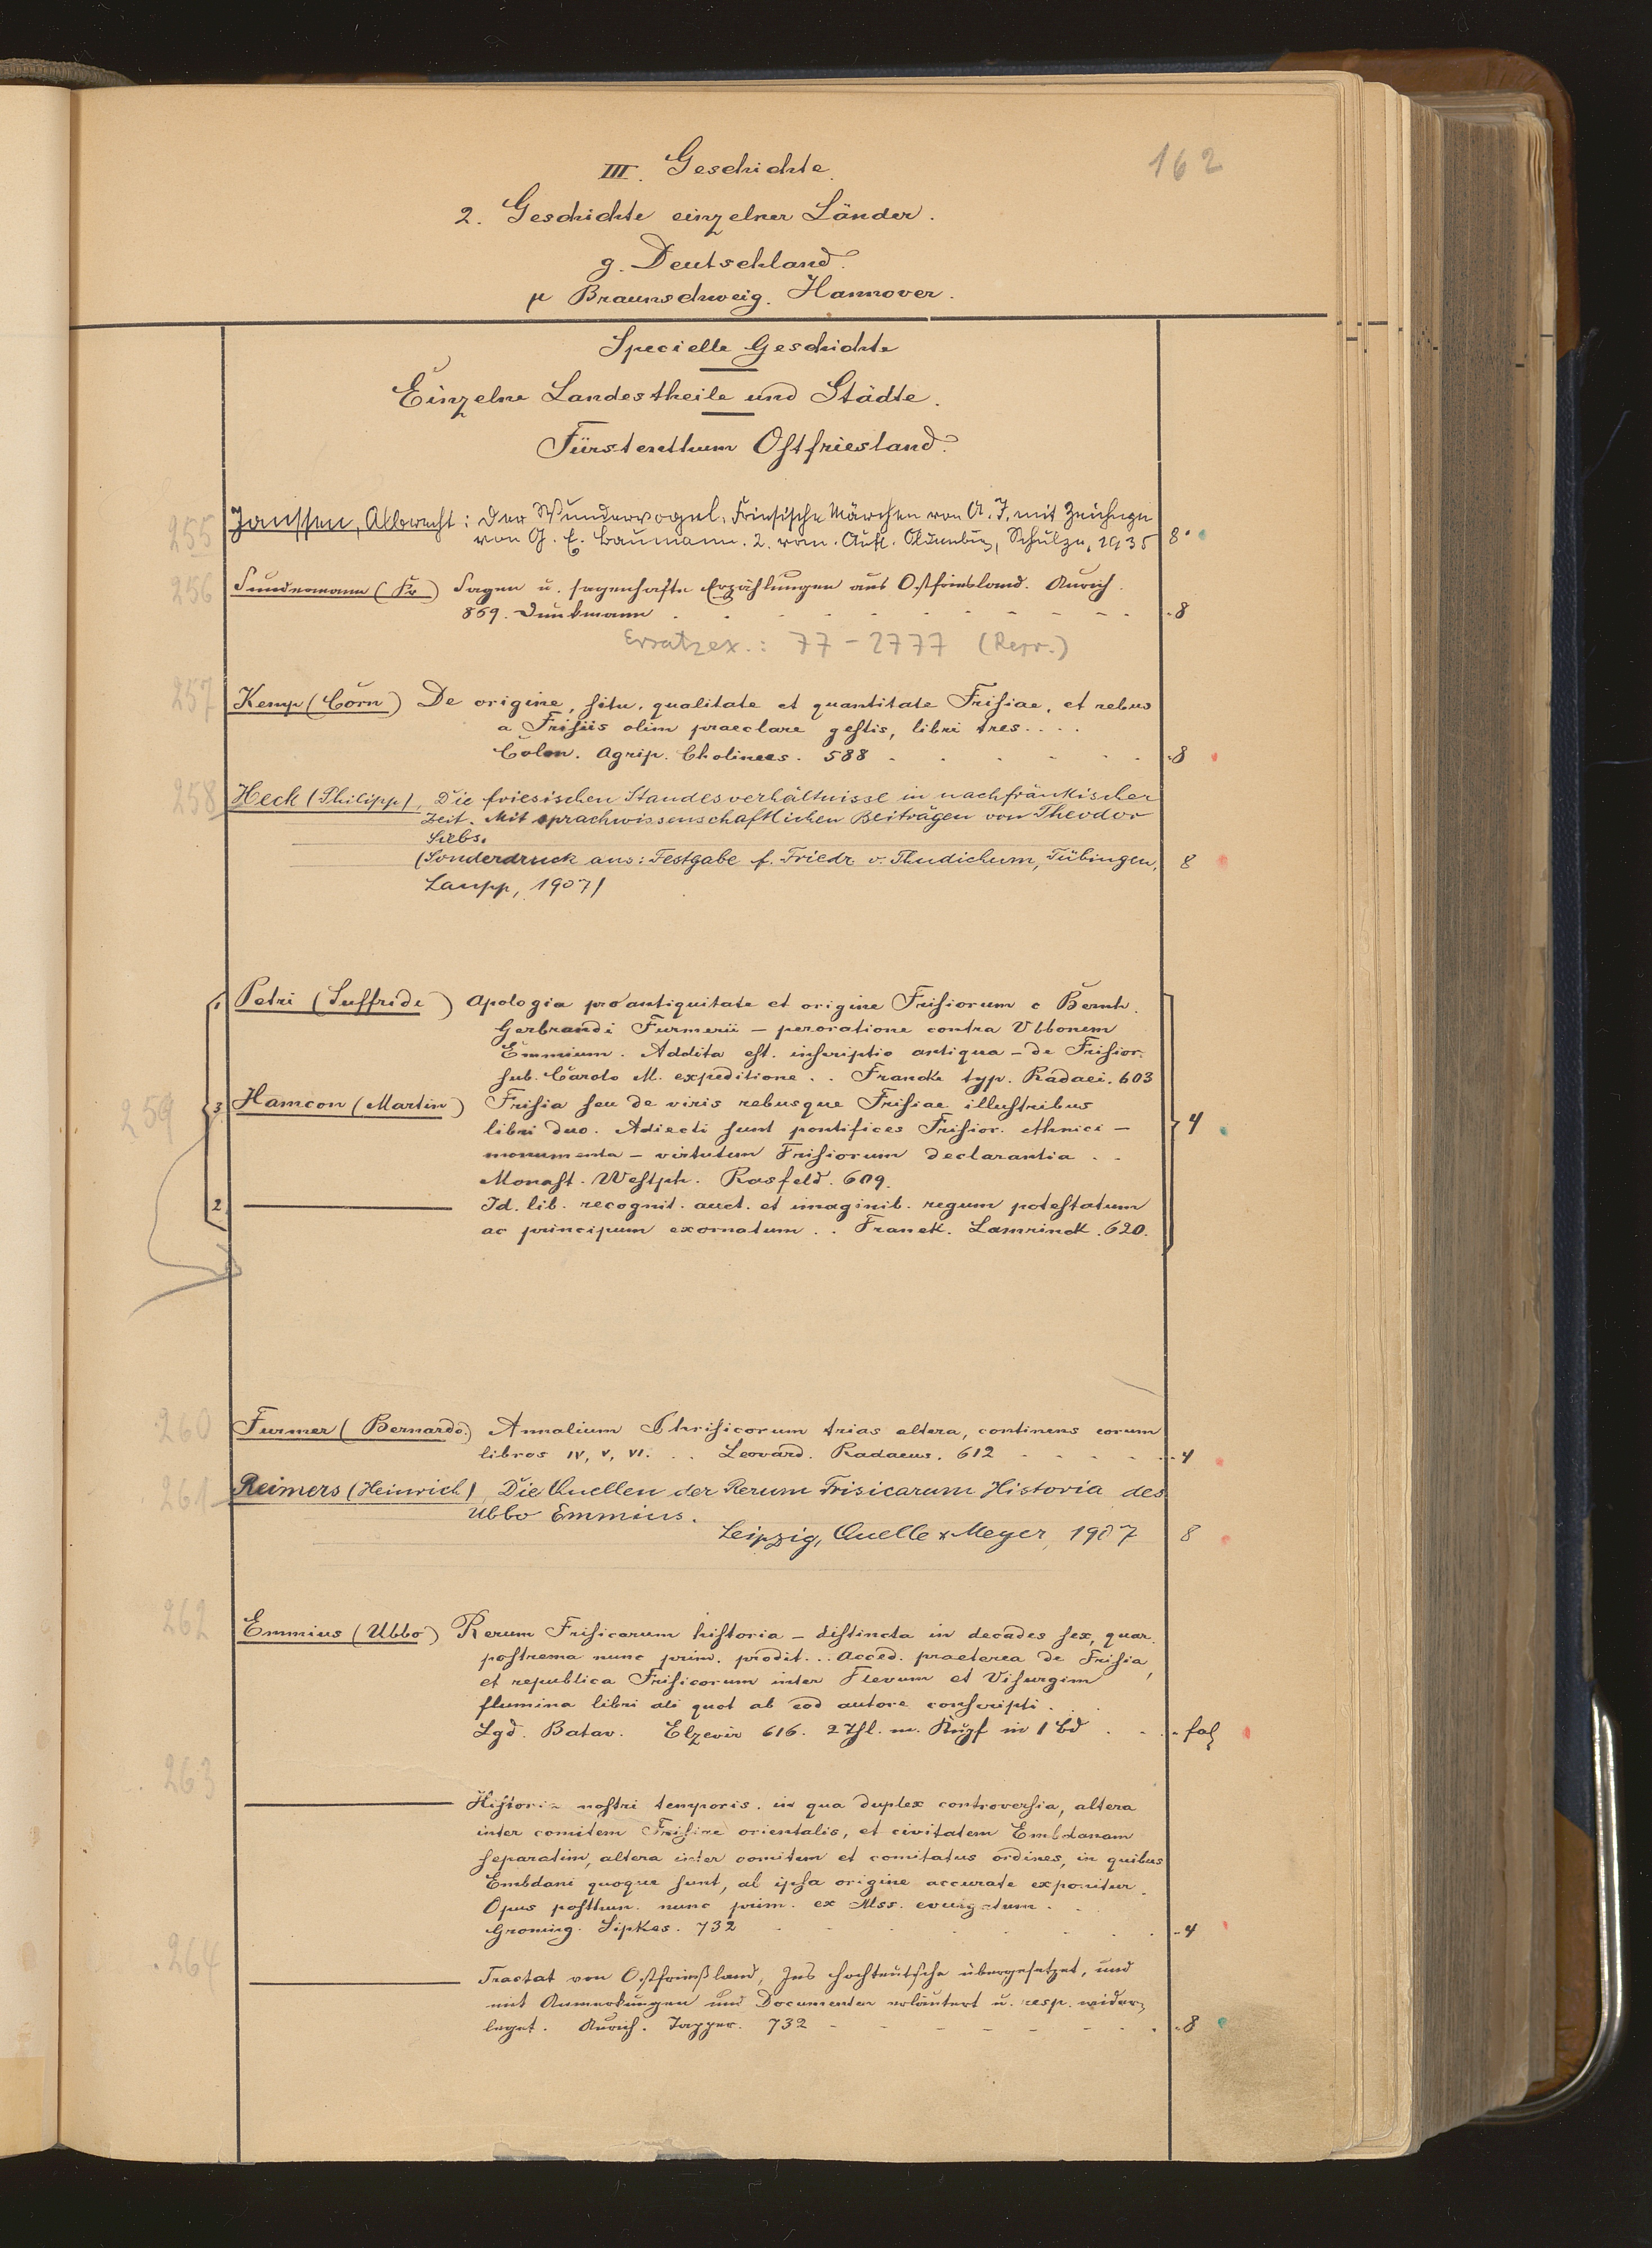 162
III. Geschichte.
2. Geschichte einzelner Länder.
g. Deutschland.
μ Braunschweig. Hannover.
Specielle Geschichte
Einzelne Landestheile und Städte.
Fürstenthum Ostfriesland.
255 Janssen, Albrecht: Der Wundervogel. Friesische Märchen von A. J. mit Zeichngn
von G. E. Baumann. 2. verm. Aufl. Oldenburg, Schulze, 1935 8°
256 Sundermann (Fr) Sagen u. sagenhafte Erzählungen aus Ostfriesland. Aurich.
869. Dunkmann . . . . . . . . . 8
Ersatzex.: 77-2777 (Repr.)
257 Kemp (Corn) De origine, situ, qualitate et quantitate Frisiae, et rebus
a Frisiis olim praeclare gestis, libri tres....
Colon. Agrip. Cholinus. 588 . . . . . . 8
258 Heck (Philipp), Die friesischen Standesverhältnisse in nachfränkischer
Zeit. Mit sprachwissenschaftlichen Beiträgen von Theodor
Siebs.
(Sonderdruck aus: Festgabe f. Friedr v. Thudichum, Tübingen, 8
Laupp, 1907)
1. Petri (Suffride) Apologia pro antiquitate et origine Frisiorum c Bernh.
Gerbrandi Furmerii – peroratione contra Ubbonem
Emmium. Addita est. inscriptio antiqua – de Frisior.
sub. Carolo M. expeditione . . Franek. typ. Radaei. 603
259 3. Hamcon (Martin) Frisia seu de viris rebusque Frisiae illustribus
libri duo. Adiecti sunt pontifices Frisior. ethnici – 4
monumenta – virtutum Frisiorum declarantia . .
Monast. Westph. Rasfeld. 609.
2. ——— Id. lib. recognit. auct. et imaginib. regum potestatum
ac principum exornatum . . Franek. Lamrinck. 620.
260 Furmer (Bernardo.) Annalium Phrisicorum trias altera, continens eorum
libros IV, V, VI. . . Leovard. Radaeus. 612 . . . . . 4
261 Reimers (Heinrich), Die Quellen der Rerum Frisicarum Historia des
Ubbo Emmius.
Leipzig, Quelle & Meyer, 1907 8
262 Emmius (Ubbo) Rerum Frisicarum historia – distincta in decades sex, quar.
postrema nunc prim. prodit... Acced. praeterea de Frisia,
et republica Frisicorum inter Flevum et Visurgim
flumina libri ali quot ab eod autore conscripti . .
Lgd. Batav. Elzevir 616. 2 Thl. m. Kupf in 1 Bd . . . fol
263
——— Historia nostri temporis. in qua duplex controversia, altera
inter comitem Frisiae orientalis, et civitatem Embdanam
separatim, altera inter comitem et comitatus ordines, in quibus
Embdani quoque sunt, ab ipsa origine accurate exponitur.
Opus posthum. nunc prim. ex Mss. evulgatum . .
Groning. Sipkes. 732 . . . . . . 4
264
——— Tractat von Ostfrießland, Ins hochteutsche übergesetzet, und
mit Anmerkungen und Documenten erläutert u. resp. wider-
leget. Aurich. Tapper. 732 - - - - - - . 8